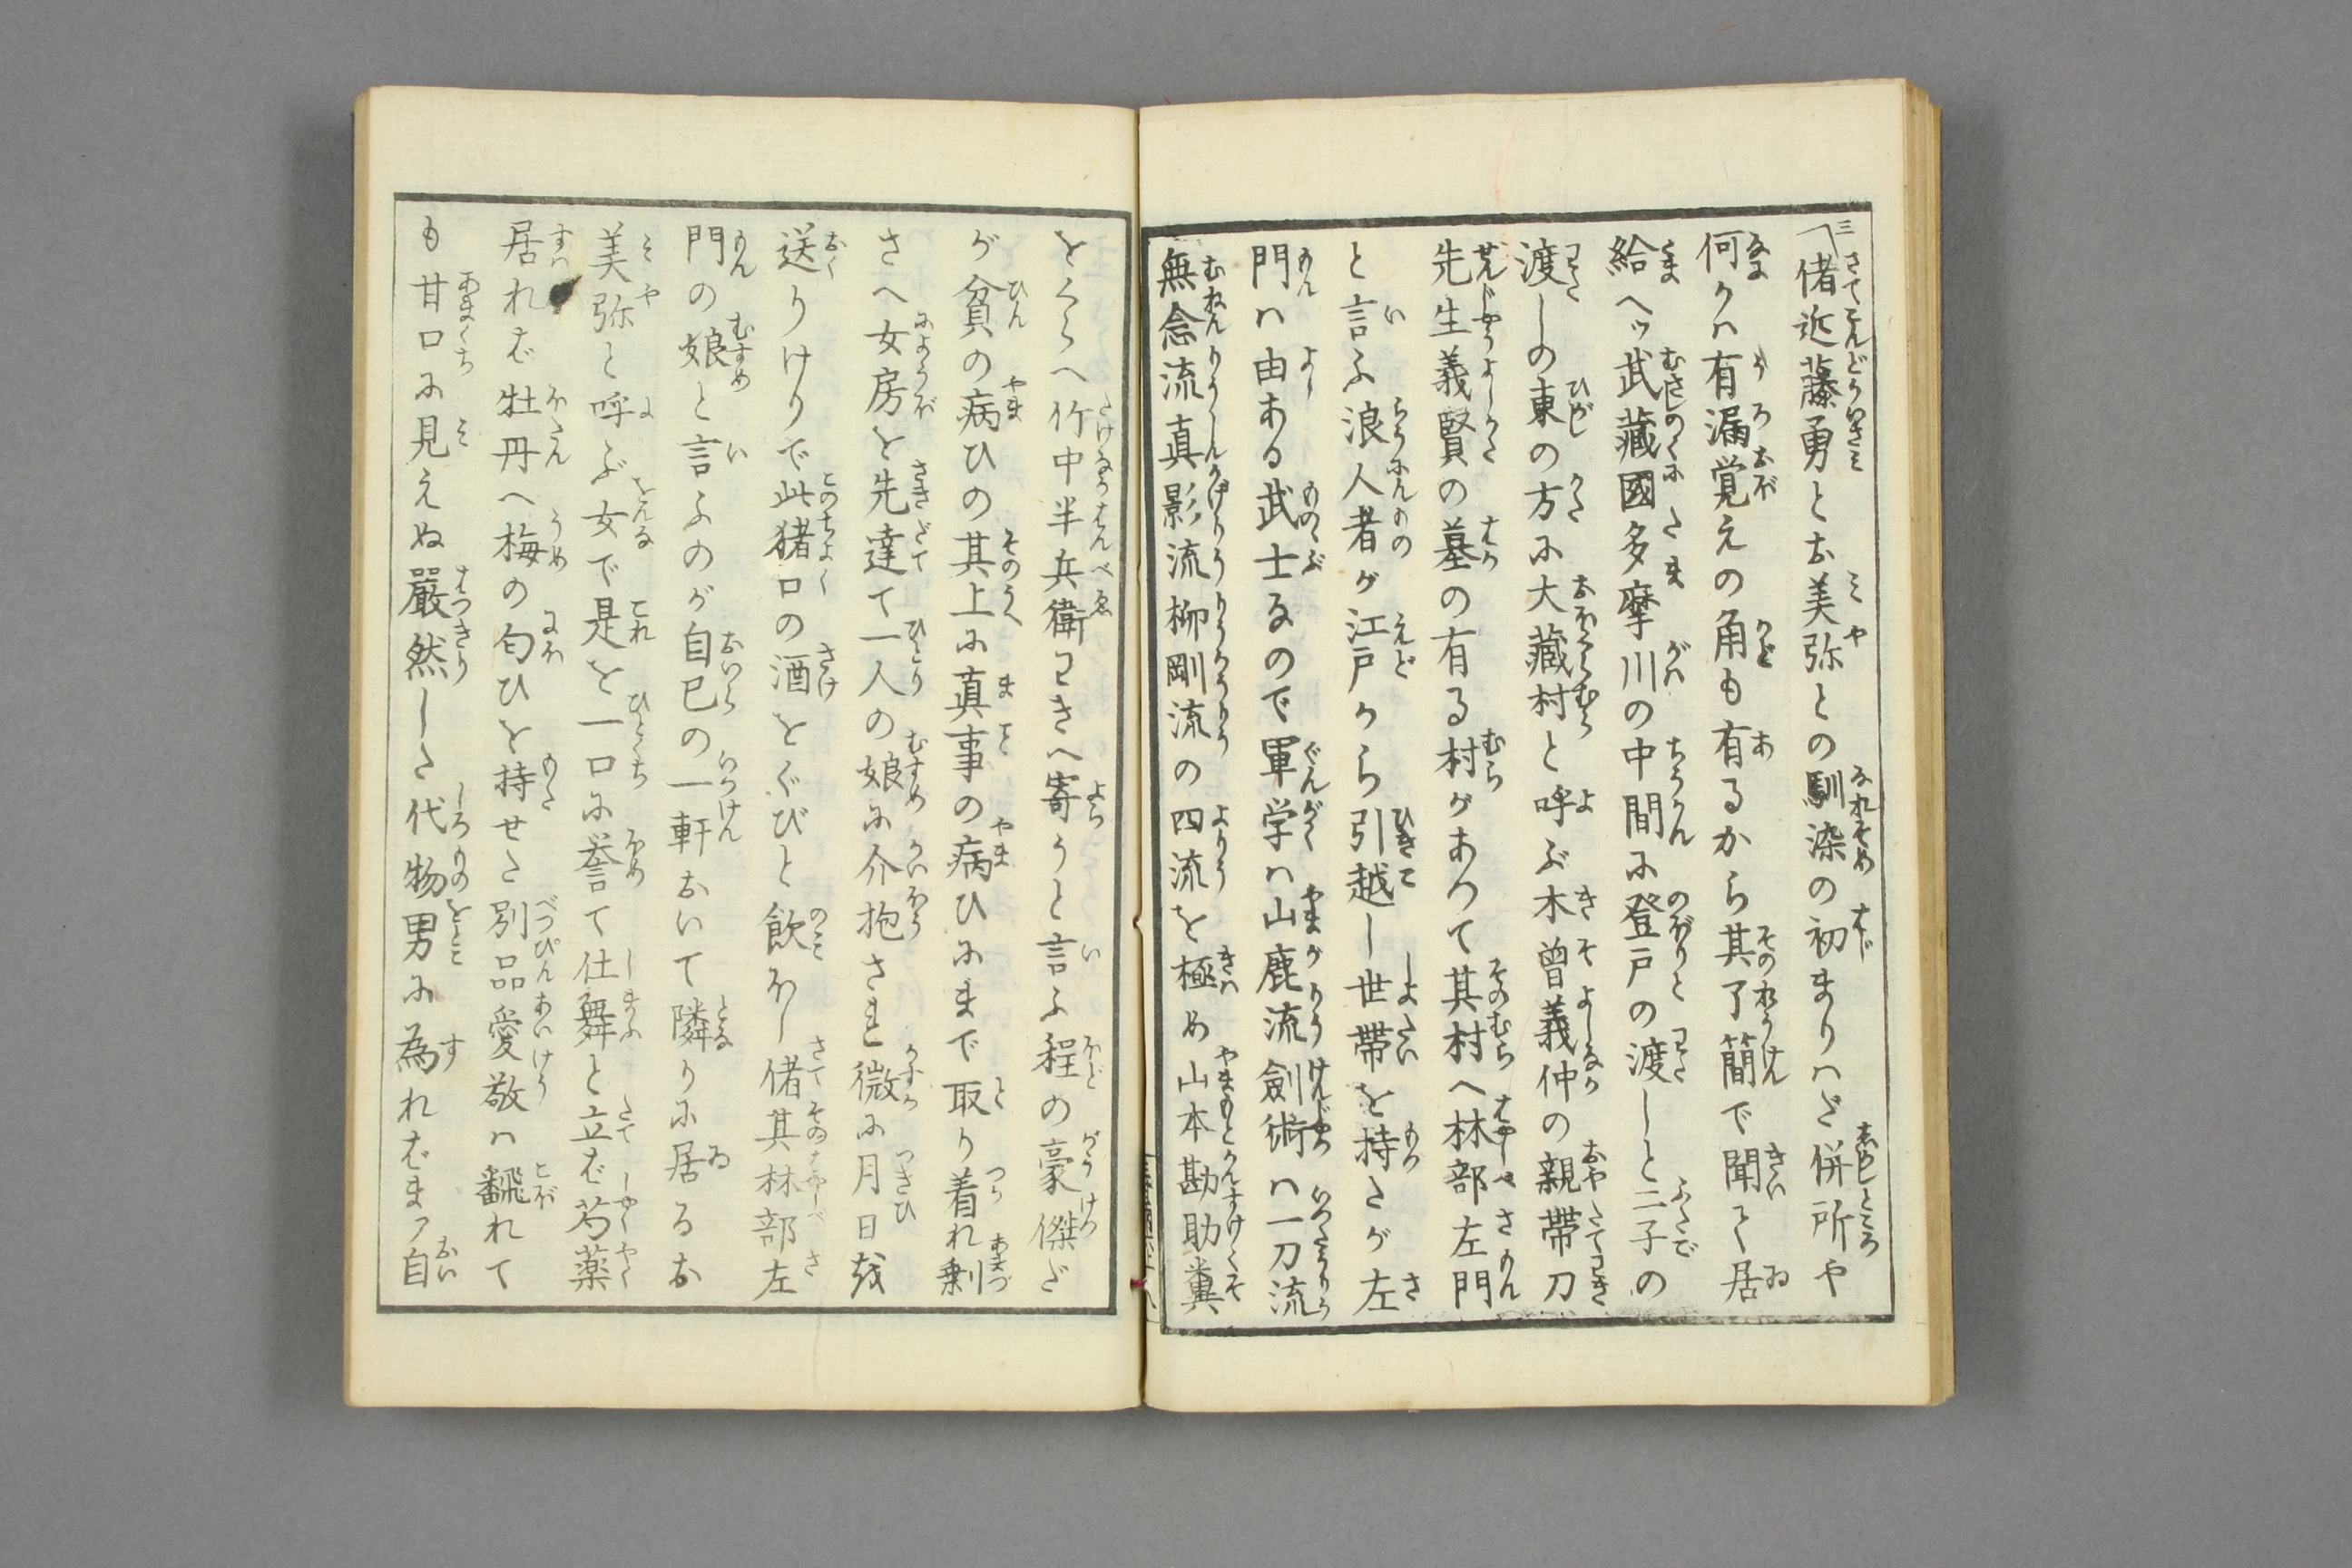 三
偖近藤勇とお美弥との馴染の初まりハざ併所や
何かハ有漏覚えの角も有るから其了簡で聞て居
給へッ武藏國多摩川の中間に登戸の渡しと二子の
渡しの東の方に大藏村と呼ぶ木曽義仲の親帯刀
先生義賢の墓の有る村があつて其村へ林部左門
と言ふ浪人者が江戸から引越し世帯を持たが左
門ハ由ある武士なので軍学ハ山鹿流劍術ハ一刀流
無念流真影流柳剛流の四流を極め山本勘助糞
をくらへ竹中半兵衛わきへ寄うと言ふ程の豪傑ざ
が貧の病ひの其上に真事の病ひにまで取り着れ剰
さへ女房を先達て一人の娘に介抱され微に月日を
送りけりで此猪口の酒をぐびと飲ほし偖其林部左
門の娘と言ふのが自己の一軒おいて隣りに居るお
美弥と呼ぶ女で是を一口に誉て仕舞と立ば芍薬
居れば牡丹へ梅の匂ひを持せた別品愛敬ハ飜れて
も甘口に見えぬ嚴然した代物男に為ればまァ自